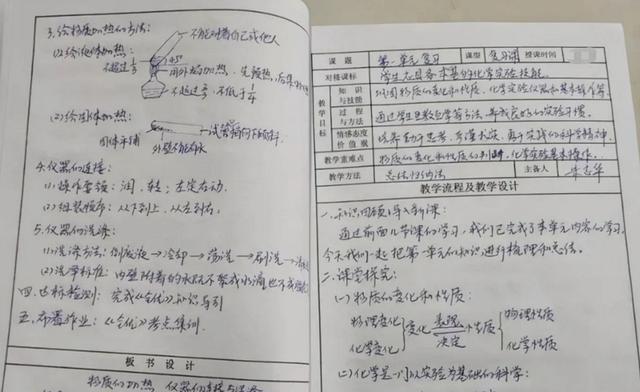 3. 给物质加热的方法:
(1)给液体加热: 不能对着自己或他人
不超过1/3 45°
用外焰加热,先预热,后集中
不超过2/3,不低于1/4
(2)给固体加热:
固体平铺 试管稍向下倾斜
外壁不能有水
4.仪器的连接:
(1)操作要领:润、转;左定右动.
(2)组装顺序:从下到上,从左到右.
5.仪器的洗涤:
(1)洗涤方法:倒废液→冷却→荡洗→刷洗→
(2)洗净标准:内壁附着的水既不聚成水滴也不成股
四.达标检测:完成《全优》知识导引
五.布置作业:《全优》考点集训.
板书设计
物质的加热 仪器的连接与洗涤
课题 第一单元复习 课型 复习课 授课时间
对接课标 学生尤具备本基的化学实验技能.
教学目标
知识与技能 巩固物质的变化和性质,化学实验仪器和基本操作等
过程与方法 通过学生思教自学等方法,养成良好的实验习惯.
情感态度价值观 培养勤于思考、严谨求实、勇于实践的科学精神
教学重难点 物质的变化和性质的判断,化学实验基本操作.
教学方法 总结归纳法 主备人
教学流程及教学设计
一.知识回顾,导入新课:
通过前面几节课的学习,我们已完成了本单元内容的学习.
今天我们一起把第一单元的知识进行梳理和总结.
二.课堂探究:
(一)物质的变化和性质:
物理变化 变化 表现 性质 物理性质
化学变化 决定 化学性质
(二)化学是一门以实验为基础的科学: